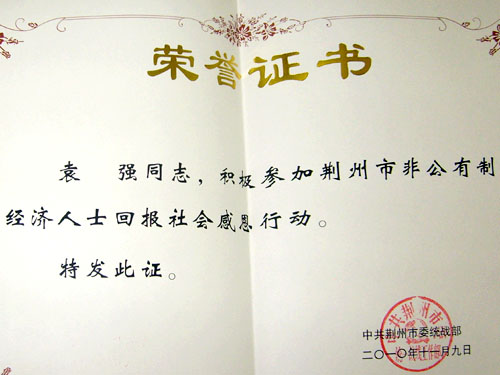 荣誉证书
袁 强同志，积极参加荆州市非公有制
经济人士回报社会感恩行动。
特发此证。
中共荆州市委统战部
二〇一〇年十一月九日